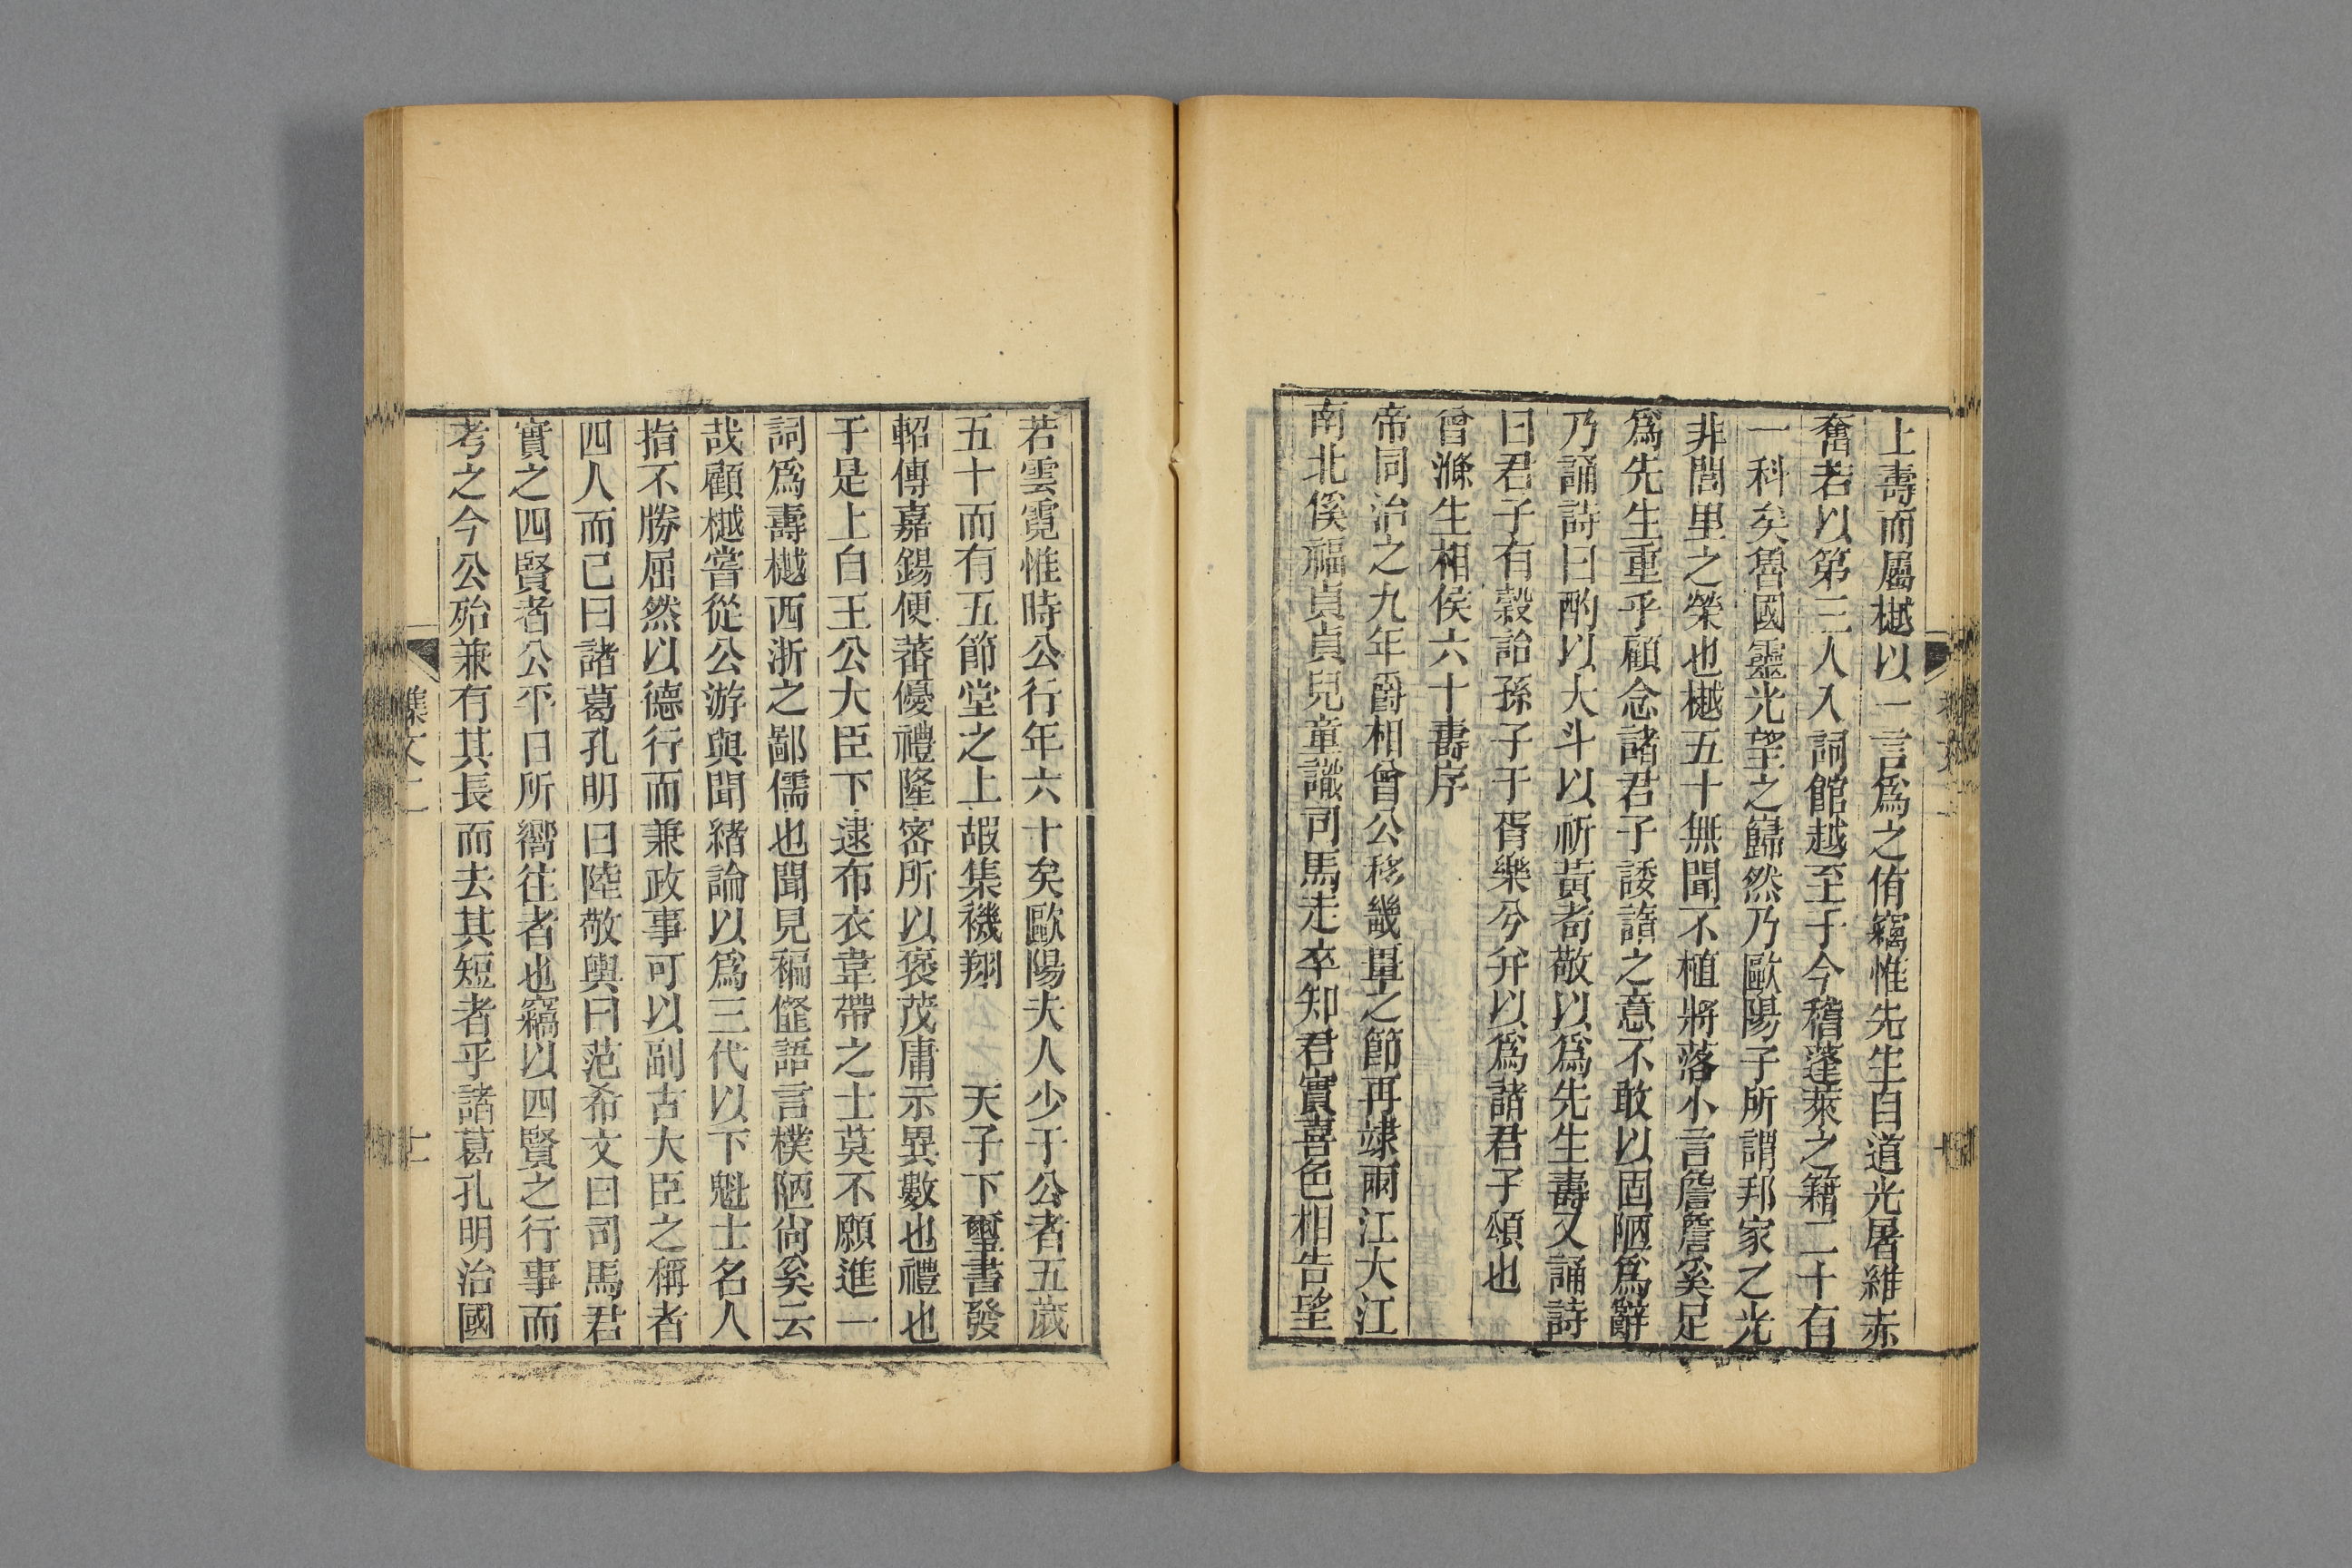 上壽而屬樾以一言爲之侑竊惟先生自道光屠維赤
奮若以第三人入詞館越至于今稽蓬萊之籍二十有
一科矣魯國靈光望之巋然乃歐陽子所謂邦家之光
非閭里之榮也樾五十無聞不植將落小言詹詹奚足
爲先生重乎顧念諸君子諉諈之意不敢以固陋爲辭
乃誦詩曰酌以大斗以祈黃耇敬以爲先生壽又誦詩
曰君子有穀詒孫子于胥樂兮幷以爲諸君子頌也
曾滌生相侯六十壽序
帝同治之九年爵相曾公移畿畺之節再肂兩江大江
南北傒福貞貞兒童識司馬走卒知君實喜色相告望
若雲霓惟時公行年六十矣歐陽夫人少于公者五歲
五十而有五節堂之上嘏集禨翔 天子下璽書發
軺傳嘉錫便蕃優禮隆密所以褒茂庸示異數也禮也
于是上自王公大臣下逮布衣韋帶之士莫不願進一
詞爲壽樾西浙之鄙儒也聞見褊僿語言樸陋尙奚云
哉顧樾嘗從公游與聞緒論以爲三代以下魁士名人
指不勝屈然以德行而兼政事可以副古大臣之稱者
四人而已曰諸葛孔明曰陸敬輿曰范希文曰司馬君
實之四賢者公平日所嚮往者也竊以四賢之行事而
考之今公殆兼有其長而去其短者乎諸葛孔明治國
襍文二